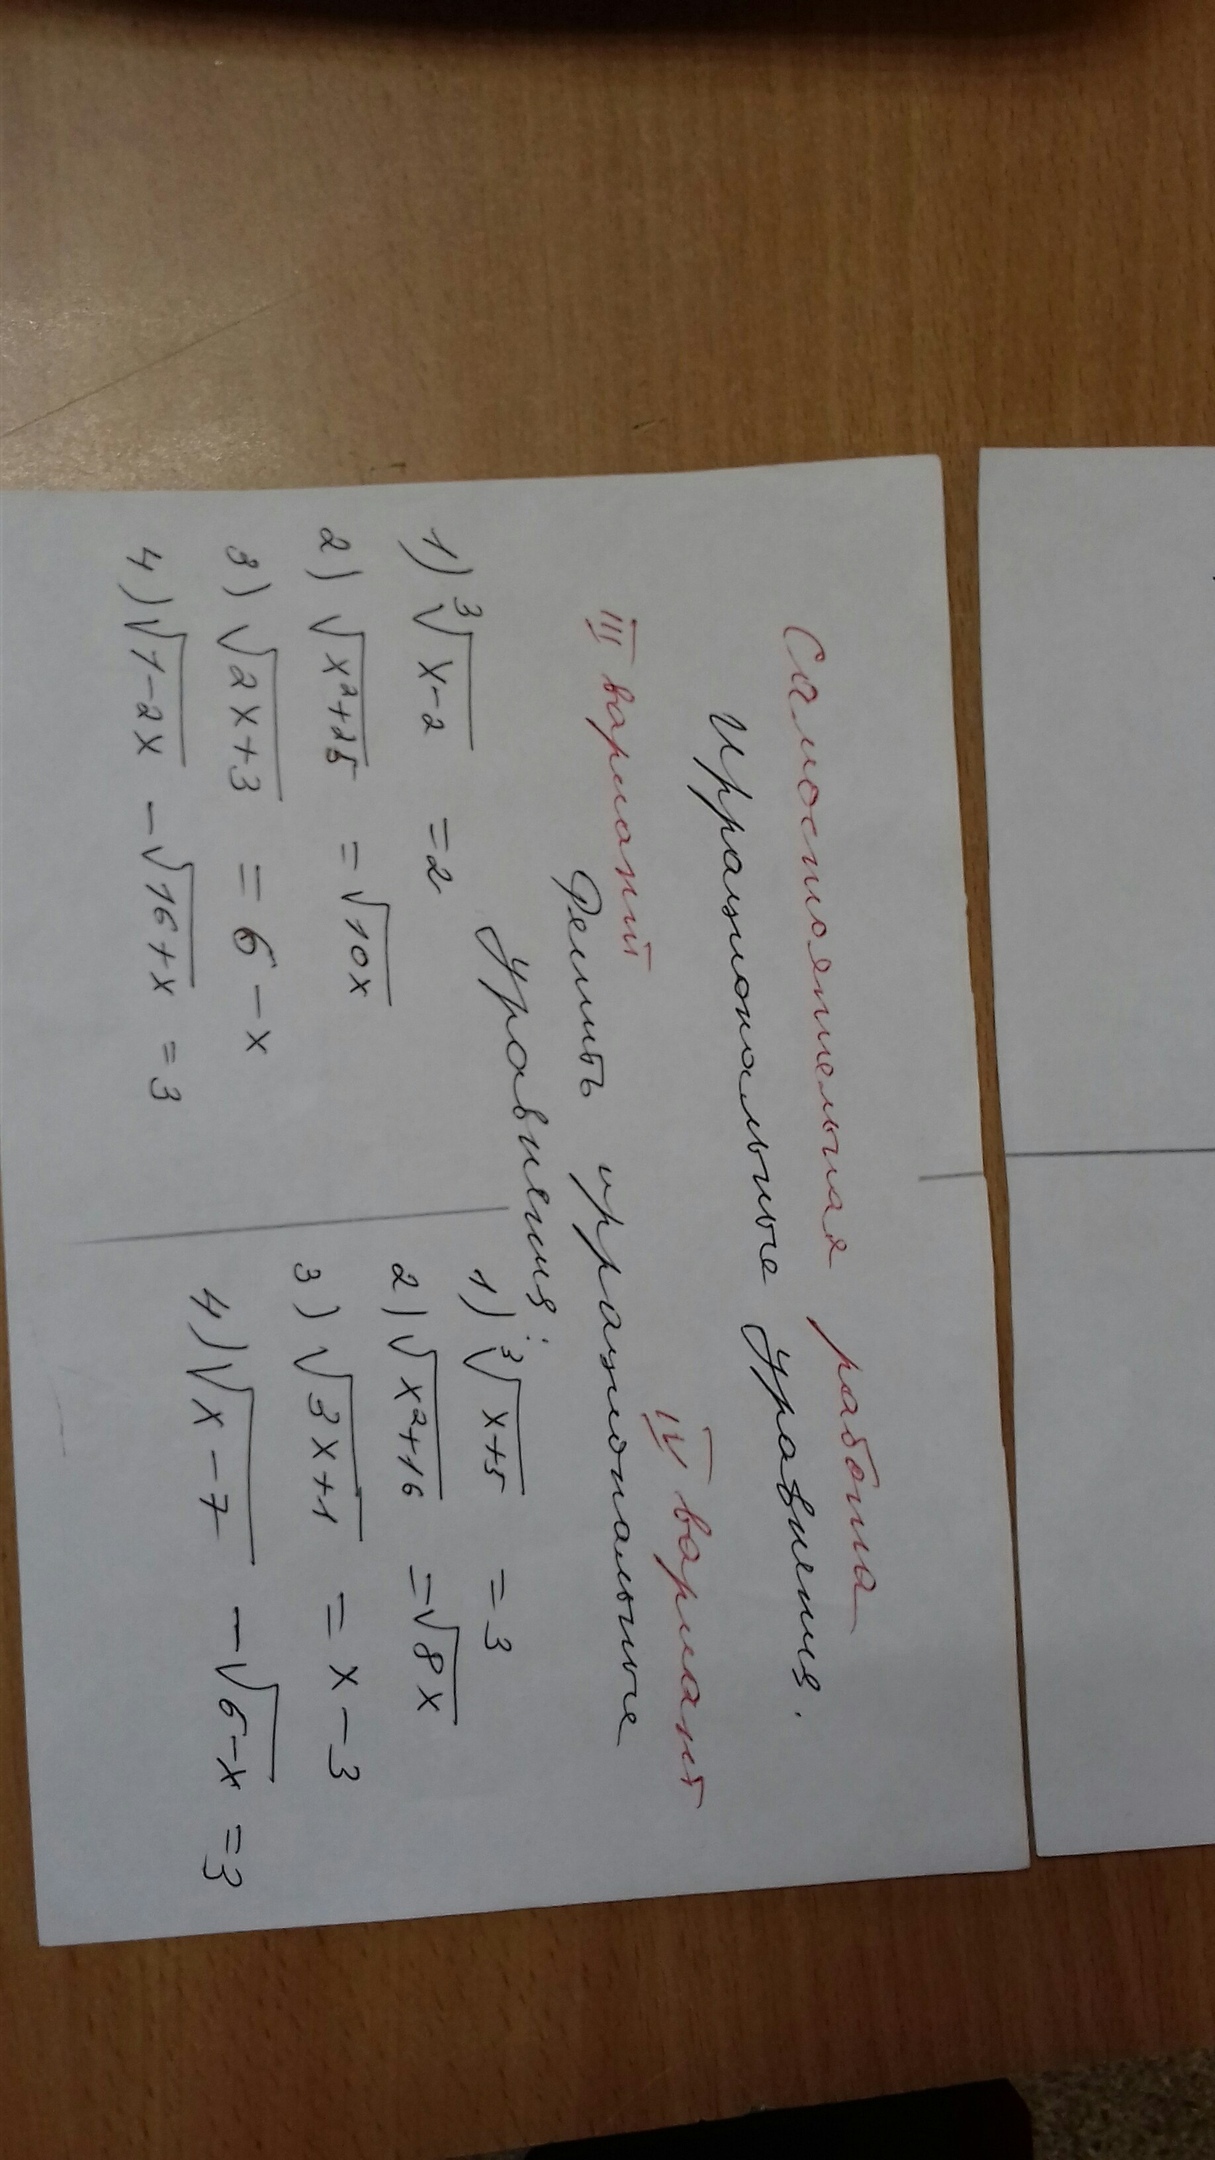 Самостоятельная работа
Иррациональные уравнения.
III вариант
IV вариант
Решить иррациональные
уравнения:
1) ∛(x-2) = 2
2) √(x²+25) = √(10x)
3) √(2x+3) = 6 - x
4) √(1-2x) - √(16+x) = 3
1) ∛(x+5) = 3
2) √(x²+16) = √(8x)
3) √(3x+1) = x - 3
4) √(x-7) - √(6-x) = 3